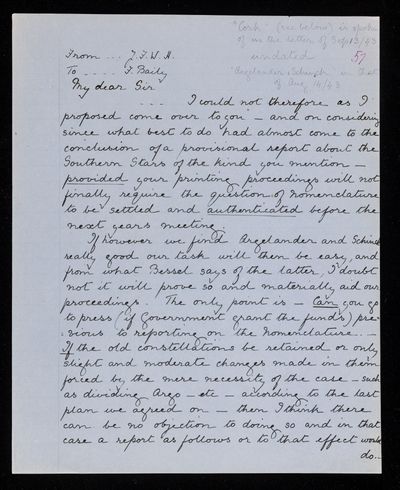 "Cork" (see below) is spoken
of in the letter of Sep 13/43
undated
57
"Argelander & Schwinck" in that
of Aug 14/43
From ... J. F. W. H.
To .... F. Baily
My dear Sir
.... I could not therefore as I
proposed come over to you — and on considering
since what best to do had almost come to the
conclusion of a provisional report about the
Southern Stars of the kind you mention —
provided your printing proceedings will not
finally require the question of nomenclature
to be settled and authenticated before the
next years meeting.
If however we find Argelander and Schwinck
really good our task will then be easy, and
from what Bessel says of the latter, I doubt
not it will prove so and materially aid our
proceedings. The only point is — Can you go
to press (if Government grant the funds) pre-
vious to reporting on the nomenclature. —
If the old constellations be retained or only
slight and moderate changes made in them
forced by the mere necessity of the case — such
as dividing Argo — etc — according to the last
plan we agreed on — then I think there
can be no objection to doing so and in that
case a report as follows or to that effect would
do..